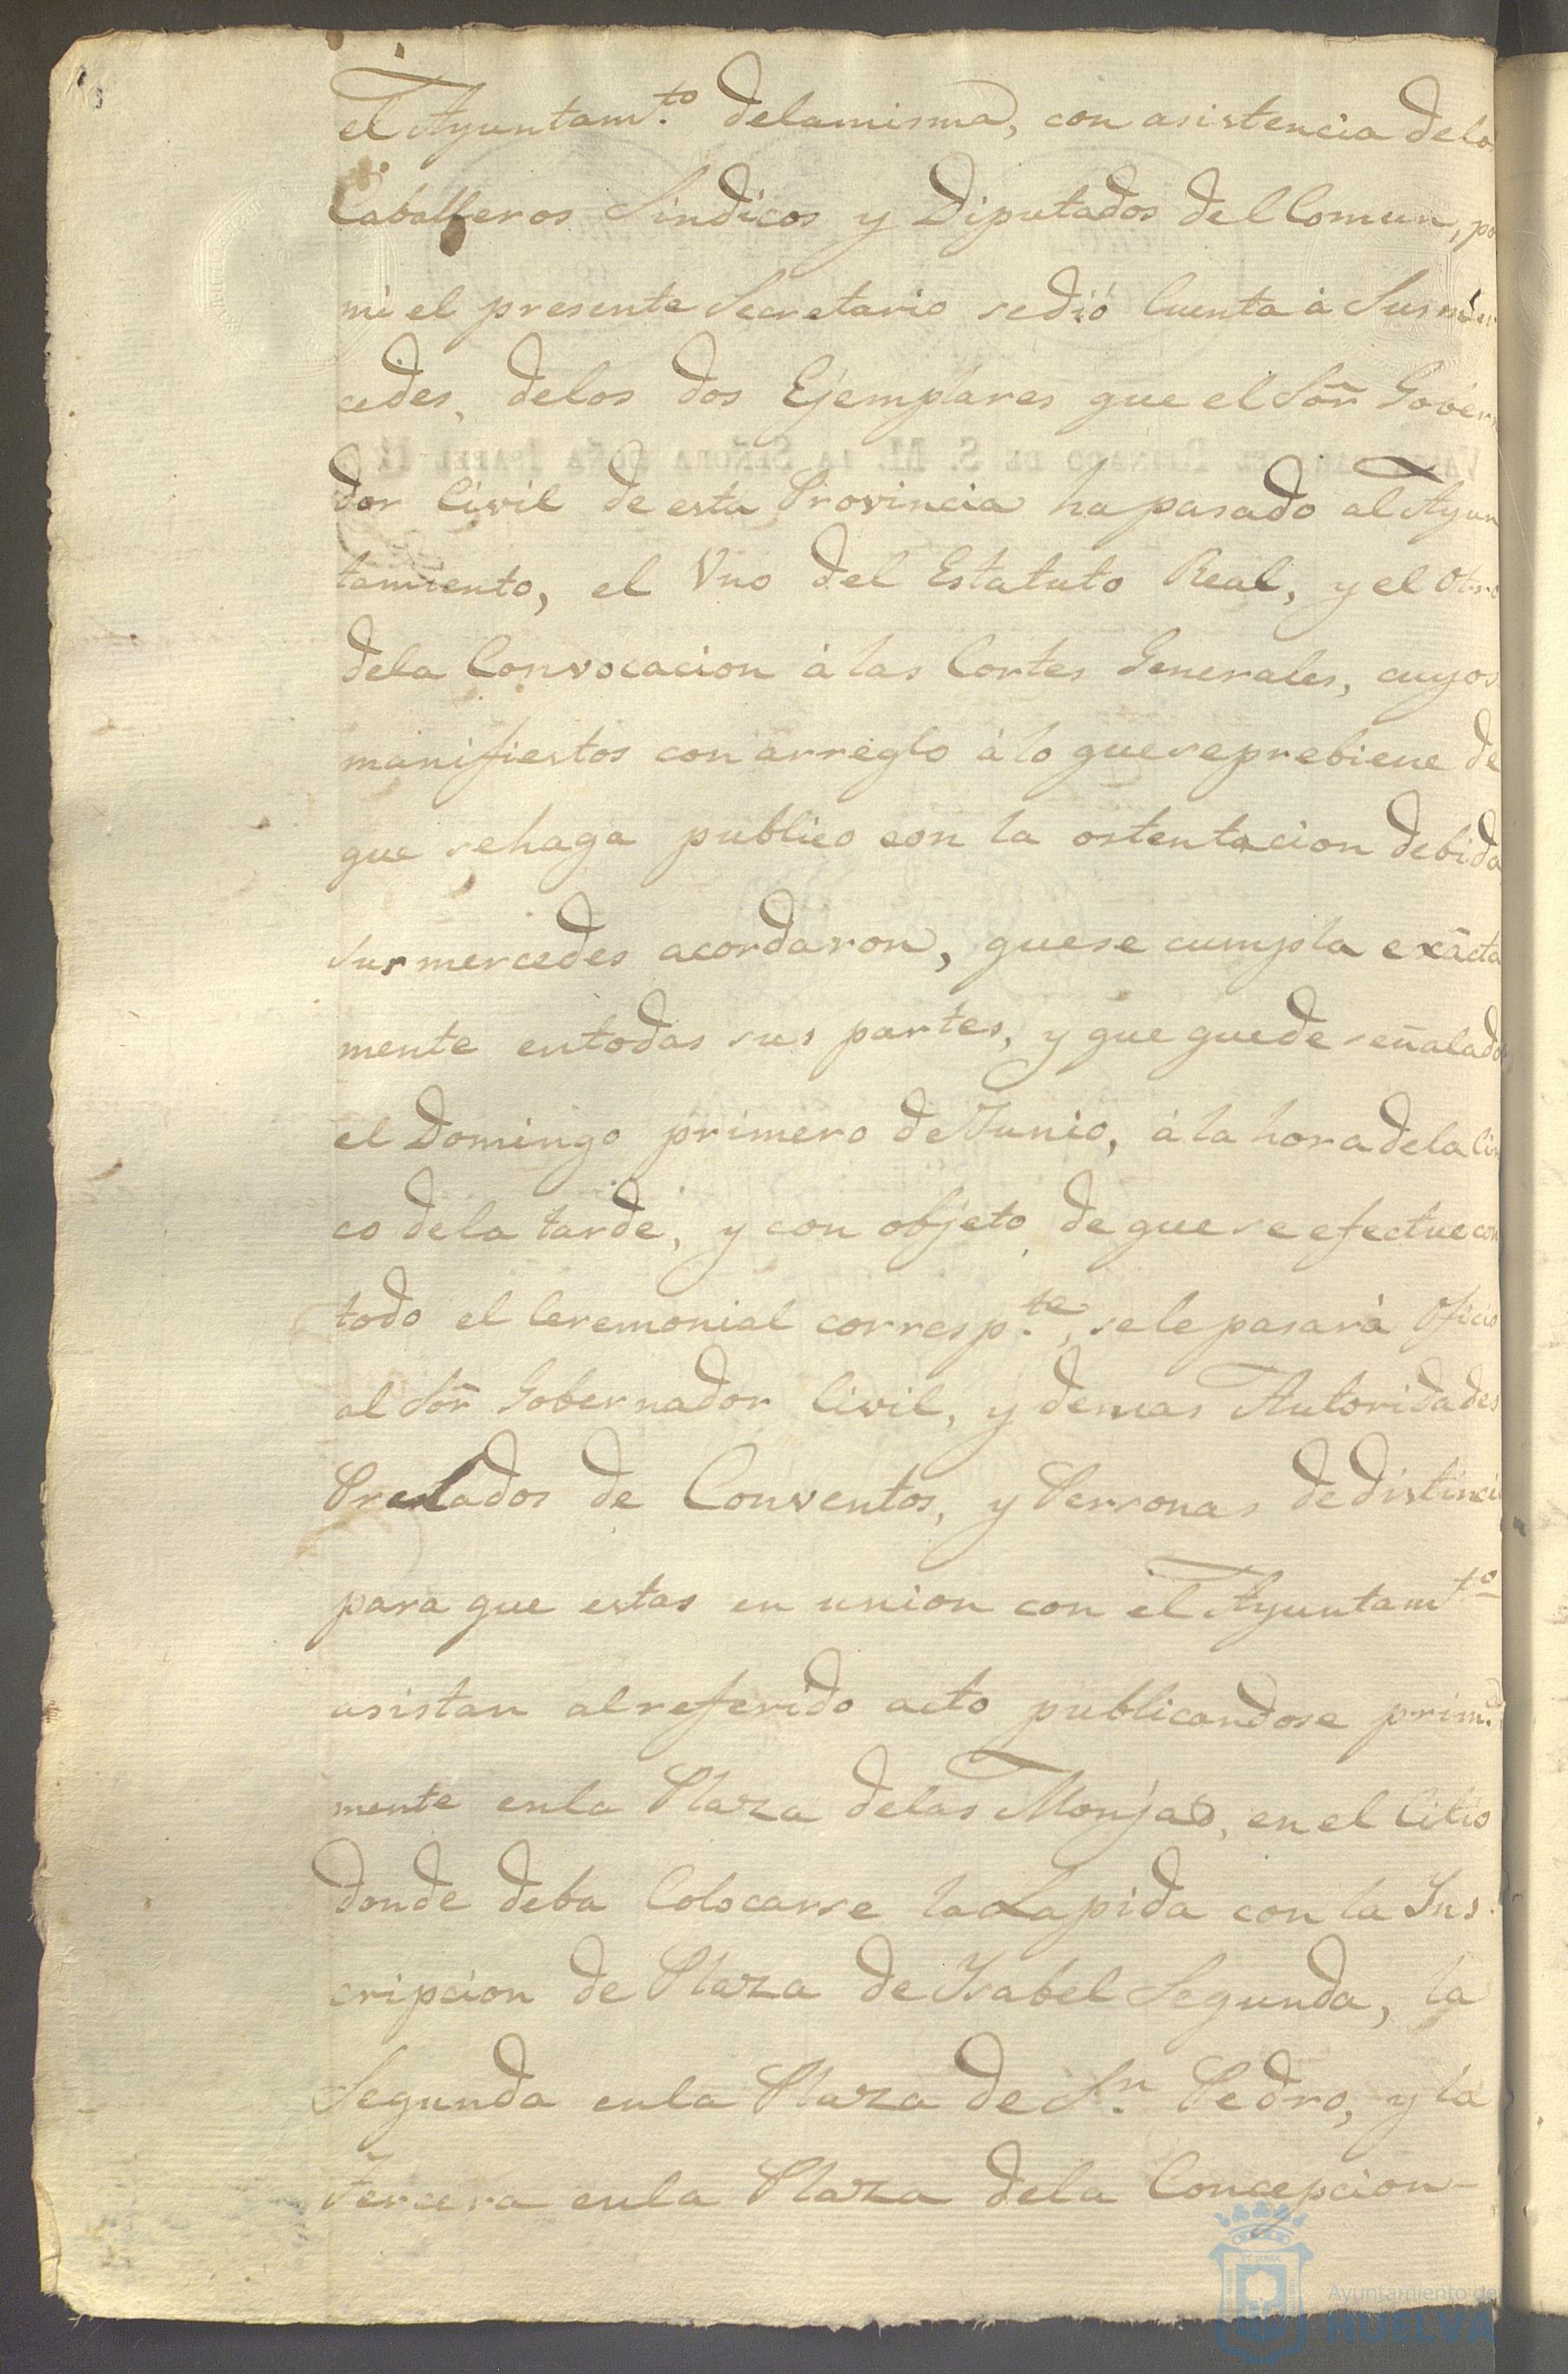 el Ayuntam.to delamisma, con asistencia delo
Caballeros Sindicos y Diputados del Comun, po
mi el presente Secretario sedió Cuenta á Sus mer
cedes, delos dos Ejemplares que el Sōr Gober
VALGA PARA EL REINADO DE S. M. LA SEÑORA DOÑA ISABEL II
dor Civil de esta Provincia ha pasado al Ayun
tamiento, el Vno del Estatuto Real, y el Otro
dela Convocacion á las Cortes Generales, cuyos
manifiestos con arreglo á lo que se prebiene de
que sehaga publico con la ostentacion debida
Sus mercedes acordaron, quese cumpla exácta
mente entodas sus partes, y que quede señalado
el Domingo primero de Junio, á la hora dela Cin
co dela tarde, y con objeto de que se efectue con
todo el Ceremonial corresp.te, sele pasará Oficio
al Sōr Gobernador Civil, y demas Autoridades
Prelados de Conventos, y Personas de distinci
para que estas en union con el Ayuntamto
asistan al referido acto publicandose prim.a
mente enla Plaza delas Monjas, en el Citio
donde deba Colocarse la Lapida con la Ins
cripcion de Plaza de Isabel Segunda, la
Segunda enla Plaza de S.n Pedro, y la
tercera enla Plaza dela Concepcion-
Ayuntamiento de
HUELVA